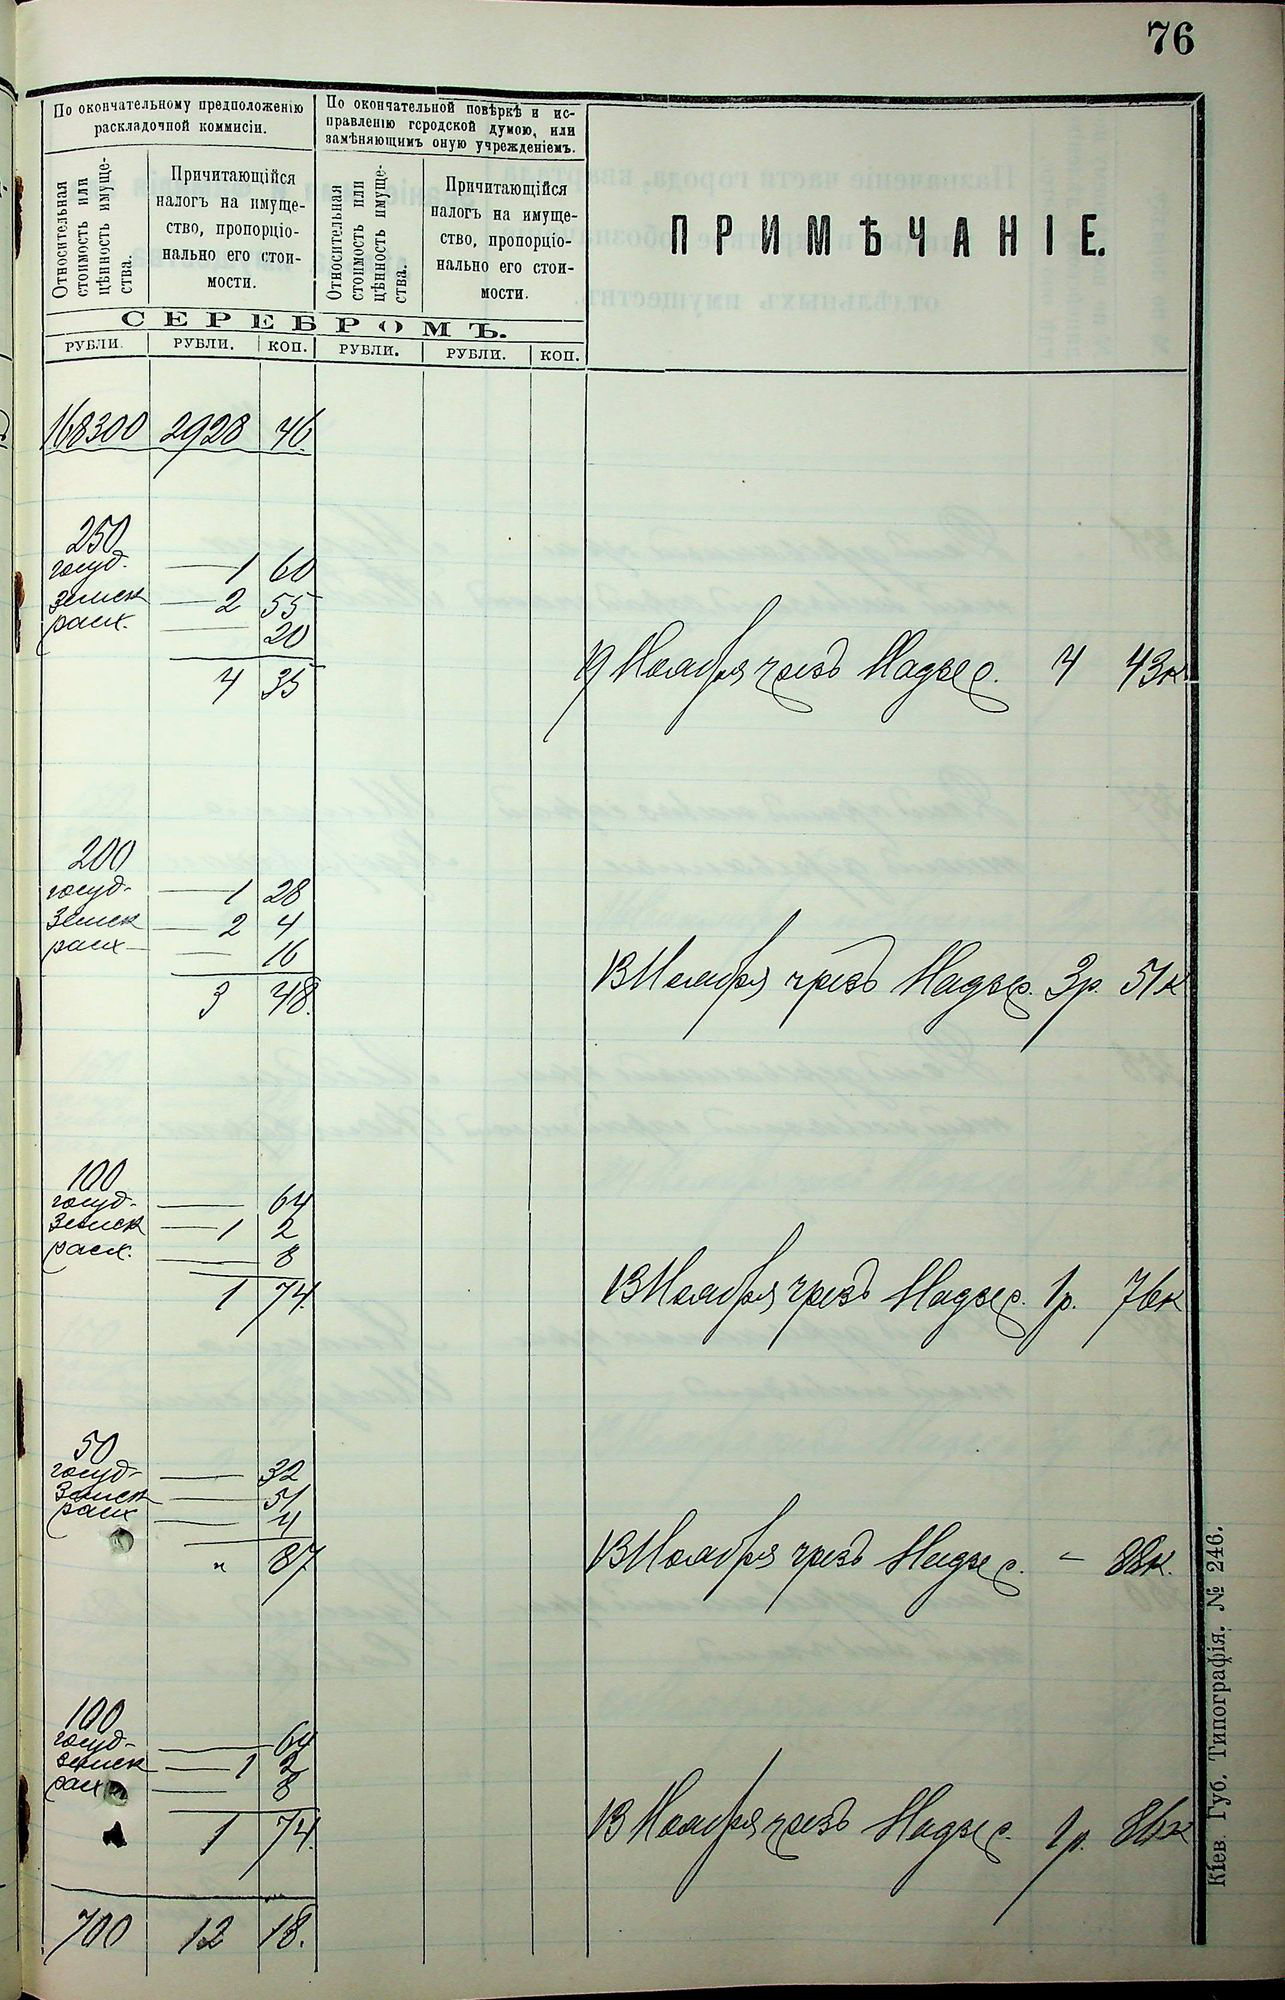 76
По окончательному предположенію
раскладочной коммисіи.
По окончательной повѣркѣ и ис-
правленію городской думою, или
замѣняющимъ оную учрежденіемъ.
Относительная
стоимость или
цѣнность имуще-
ства.
Причитающійся
налогъ на имуще-
ство, пропорціо-
нально его стои-
мости.
Относительная
стоимость или
цѣнность имуще-
ства.
Причитающійся
налогъ на имуще-
ство, пропорціо-
нально его стои-
мости.
ПРИМѢЧАНІЕ.
СЕРЕБРОМЪ.
РУБЛИ. РУБЛИ. КОП. РУБЛИ. РУБЛИ. КОП.
168300 2928 46.
250
госуд. — 1 60
земск — 2 55
расх. — 20
4 35
19 Ноября чрезъ Надзс. 4 43к
200
госуд- — 1 28
Земск — 2 4
расх — 16
3 48.
13 Ноября чрезъ Надзс. 3р. 51к
100
госуд- — 64
Земск — 1 2
расх. — 8
1 74.
13 Ноября чрезъ Надзс. 1р. 76к
50
госуд- — 32
Земск — 51
расх — 4
" 87
13 Ноября чрезъ Надзс. - 88к.
100
госуд- — 64
земск — 1 2
расх — 8
1 74.
13 Ноября чрезъ Надзс. 1р. 86к
700 12 18.
Кіев. Губ. Типографія. № 246.